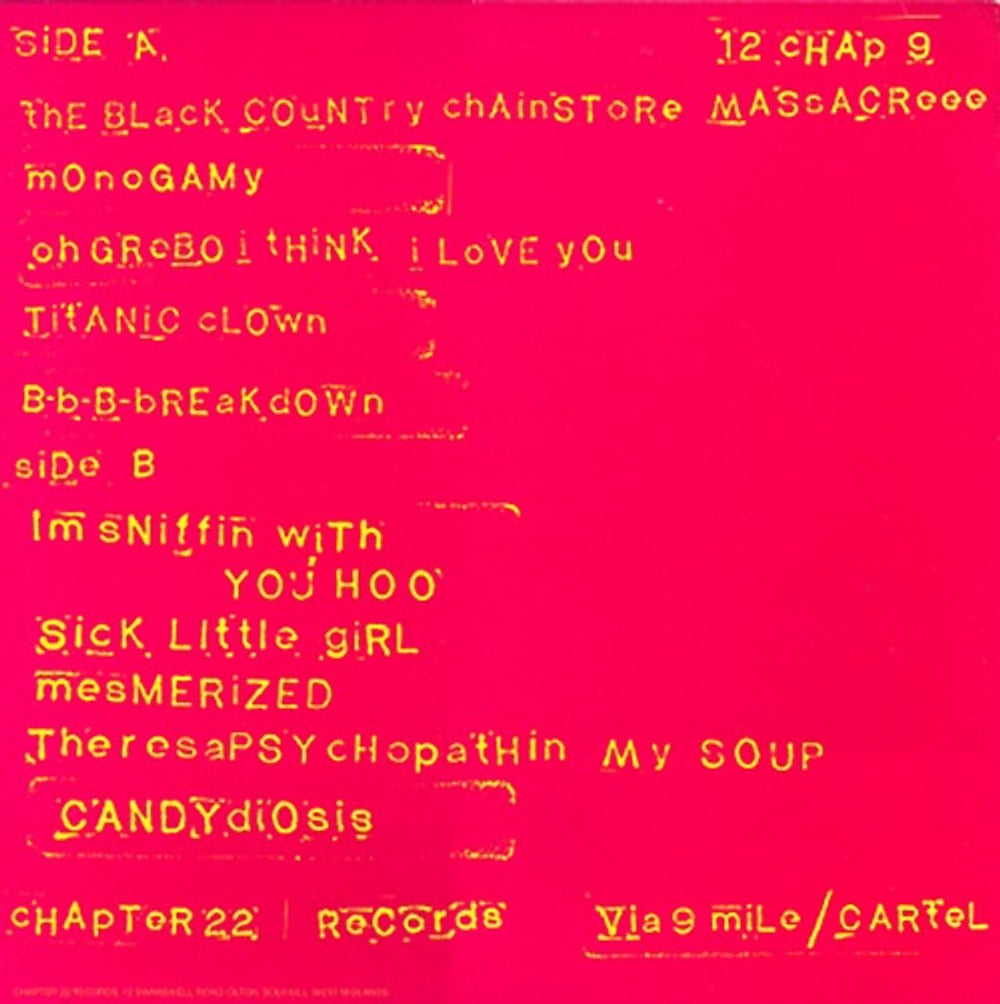 SiDE A. 12 cHAp 9
thE BLacK COuNTry chAinSToRe MASsACReee
mOnoGAMy
oh GReBO i tHiNK i LoVE yOu
TitANiC cLOwn
B-b-B-bREaKdOWn
siDe B
Im sNiffin wiTh
YOU HOO
SicK LIttle giRL
mesMERiZED
TheresaPSYcHopatHin My SOUP
CANDYdiOsis
cHApTeR 22 ReCords Via 9 miLe/CARTeL
CHAPTER 22 RECORDS, 72 ROAD, OLTON, SOLIHULL, WEST MIDLANDS